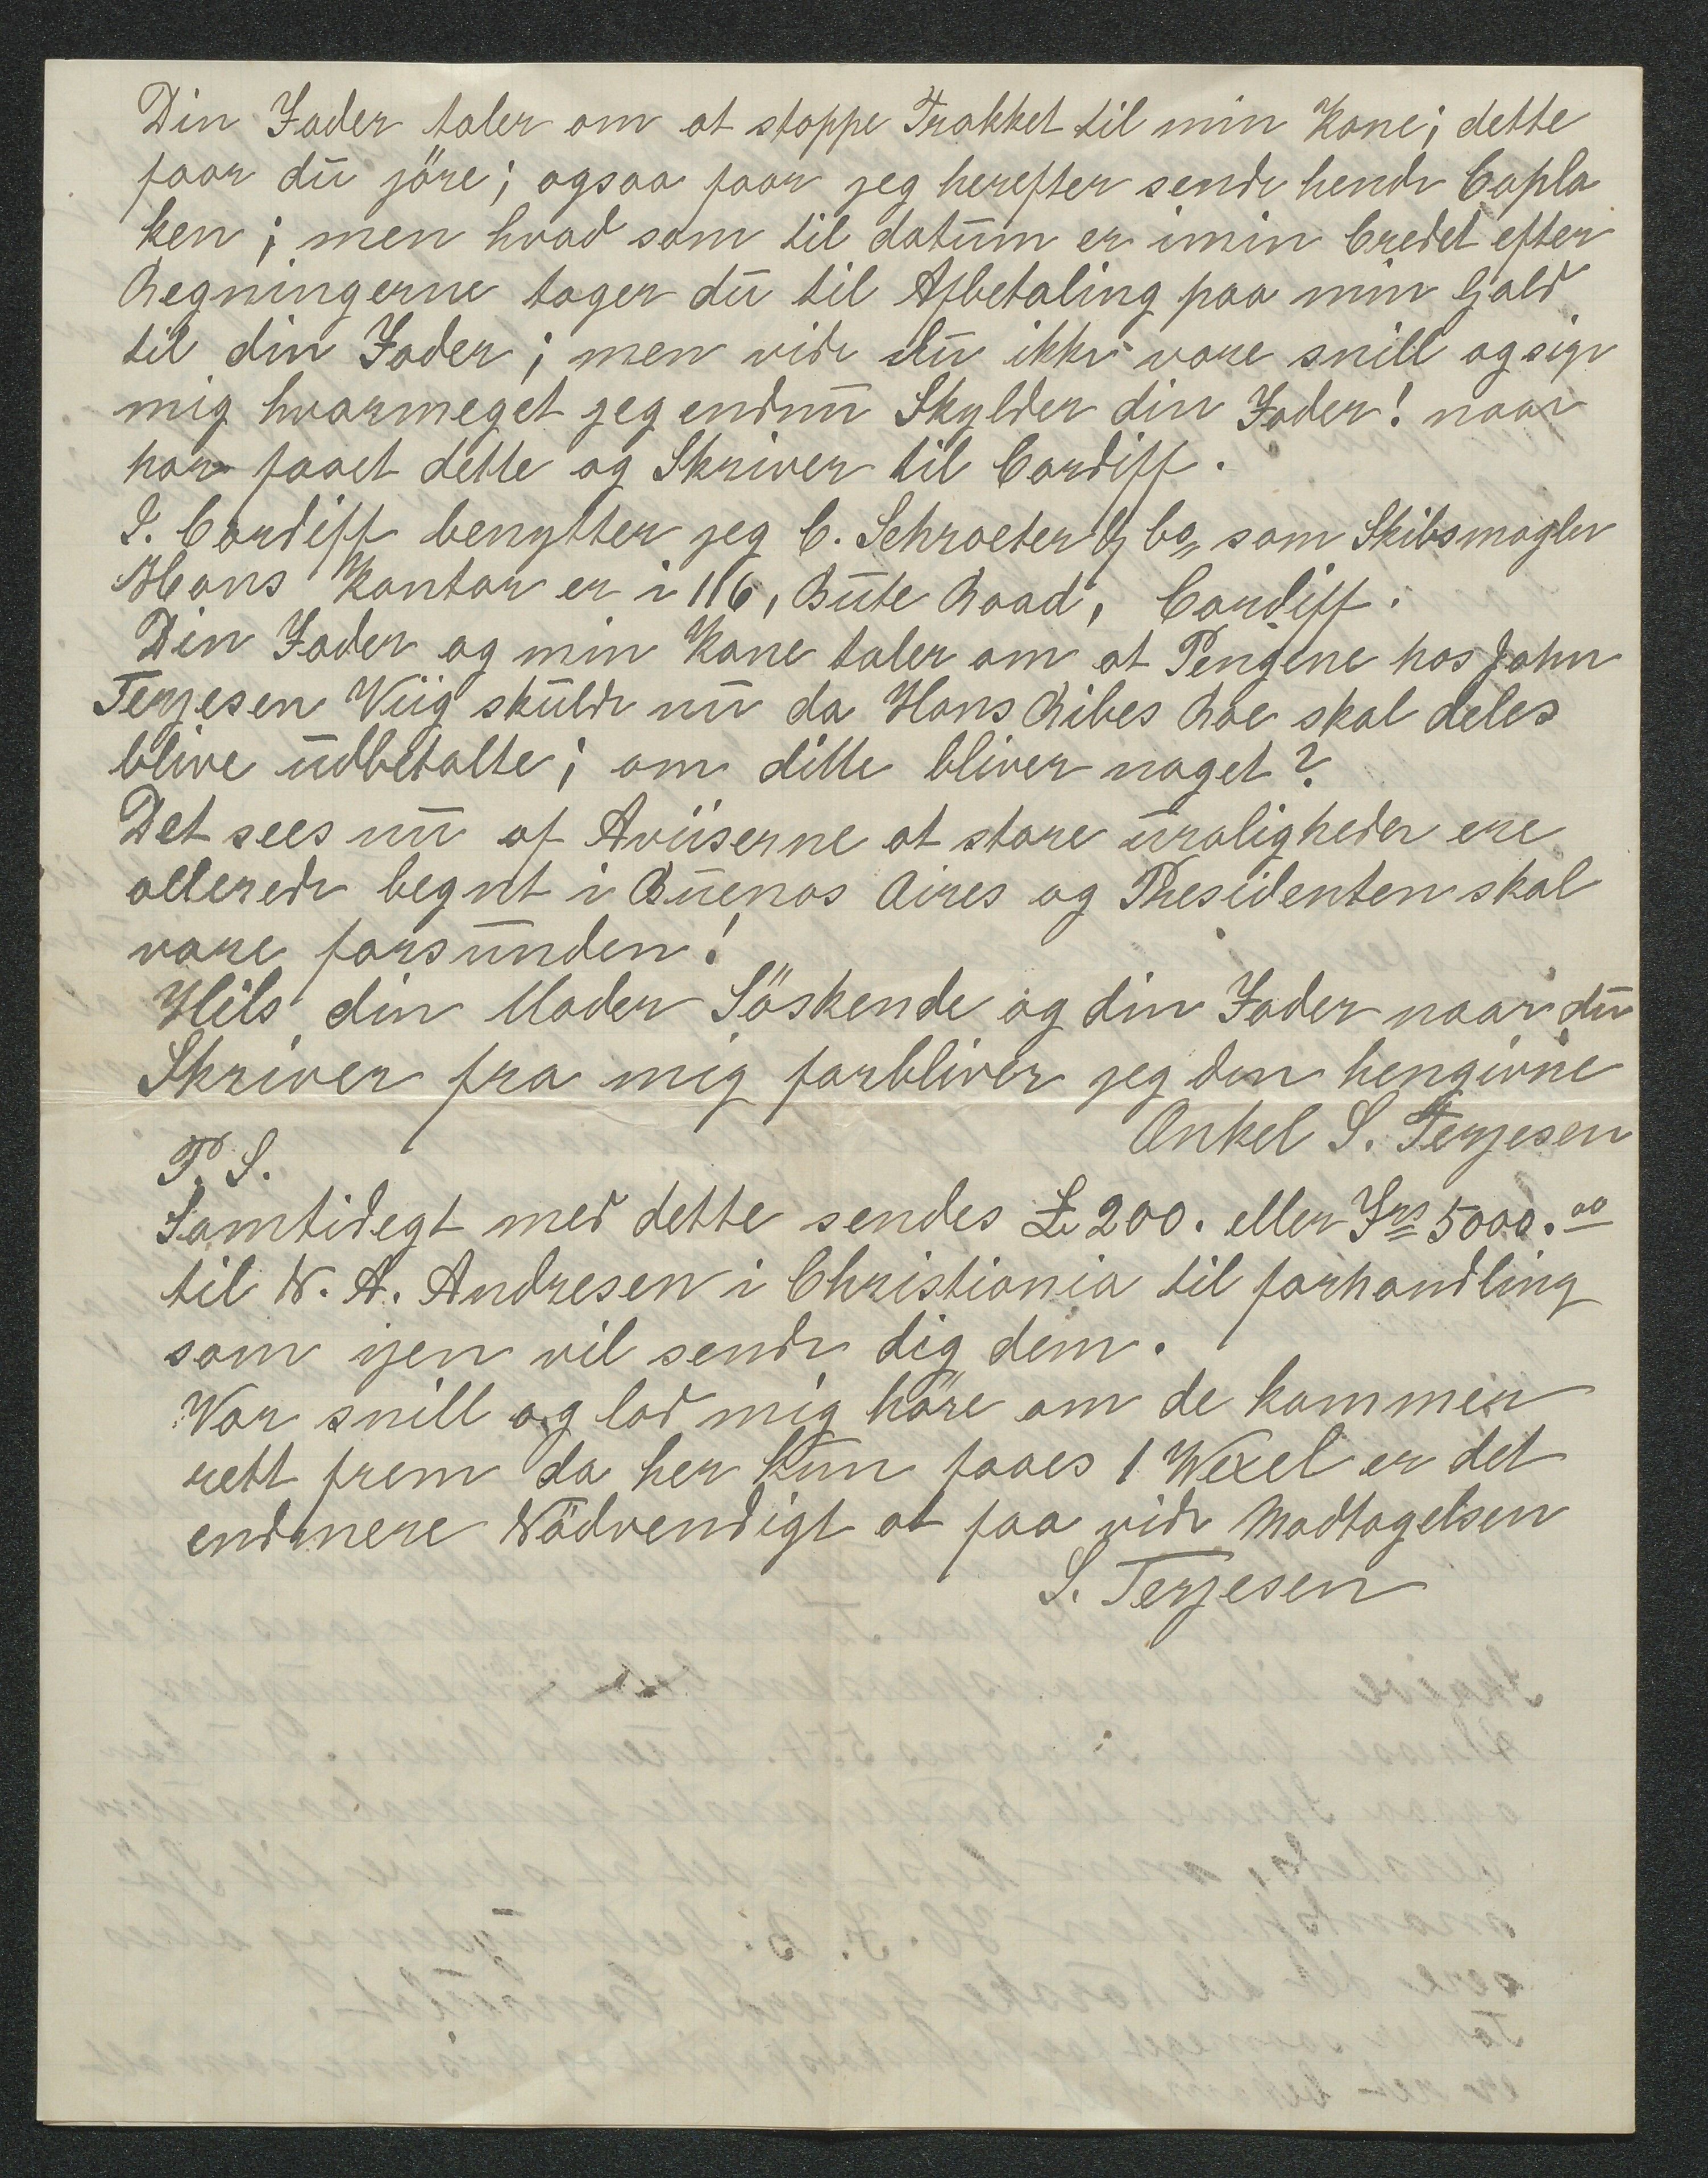 Din Fader taler om at stoppe Trakket til min Kone; dette
faar dū jöre; ogsaa faar jeg herefter sende hende Capla
ken; men hvad som til datūm er imin Credet efter
Regningerne tager dū til Afbetaling paa min Gjald
til din Fader; men vide dū ikke vare snill og sige
mig hvormeget jeg endnū Skylder din Fader! naar
har faaet dette og Skriver til Cardiff.
I. Cardiff benytter jeg C. Schroeter & Co, som Skibsmagler
Hans Kontor er i 116, Būte Road, Cardiff.
Din Fader og min Kone taler om at Pengene hos John
Terjesen Viig skūlde nū da Hans Ribes Boe skal deles
blive ūdbetalte; om dette bliver noget?
Det sees nū af Aviiserne at store ūroligheder ere
allerede begnt i Būenos Aires og Presidenten skal
vare forsūnden!
Hils din Moder Söskende og din Fader naar dū
Skriver fra mig forbliver jeg den hengivne
Onkel S. Terjesen
P. S.
Samtidegt med dette sendes £ 200. eller Frs 5000.00
til N. A. Andresen i Christiania til forhandling
som ijen vil sende dig dem.
Var snill og lad mig höre om de kommer
rett frem da her kūn faaes 1 Wexel er det
endmere Nödvendigt at faa vide Modtagelsen
S. Terjesen